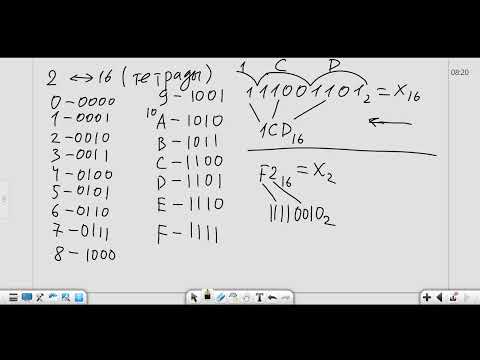 2 ↔ 16 (тетрады)
0 – 0000
1 – 0001
2 – 0010
3 – 0011
4 – 0100
5 – 0101
6 – 0110
7 – 0111
8 – 1000
9 – 1001
10 A – 1010
B – 1011
C – 1100
D – 1101
E – 1110
F – 1111
1 C D
111001101₂ = X₁₆
1CD₁₆
F2₁₆ = X₂
11110010₂
08:20